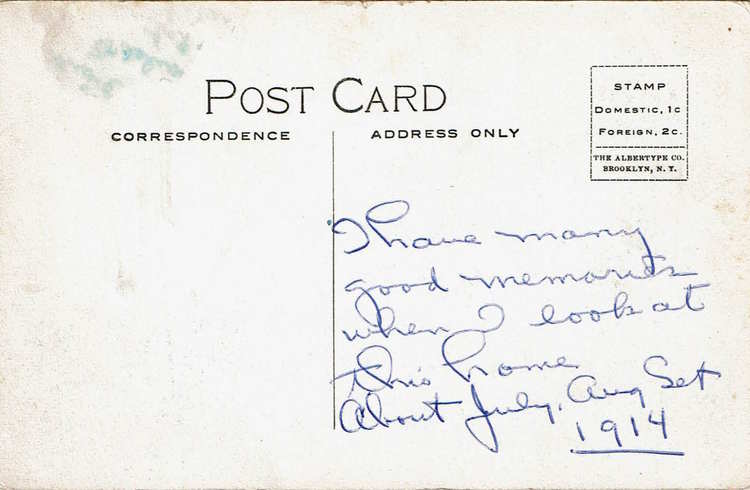 POST CARD
CORRESPONDENCE
ADDRESS ONLY
STAMP
DOMESTIC, 1C
FOREIGN, 2C.
THE ALBERTYPE CO.
BROOKLYN, N. Y.
I have many
good memories
when I look at
this home
About July, Aug Set
1914